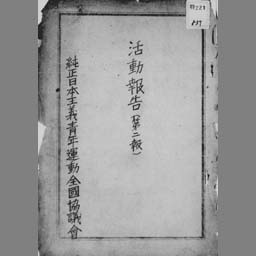 活動報告(第二報)
純正日本主義青年運動全國協議會